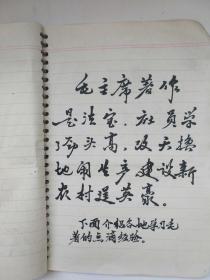 毛主席著作
是法宝，社员学
了劲头高，改天换
地闹生产建设新
农村逞英豪。
下面介绍各地学习毛
著的点滴经验。